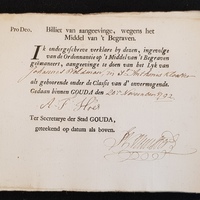 Pro Deo. Billiet van aangeevinge, wegens het
Middel van 't Begraven.
Ik ondergeschreve verklare by dezen, ingevolge
van de Ordonnantie op 't Middel van 't Begraven
geëmaneert, aangevinge te doen van het Lyk van
Johannes
als gehoorende onder de Classis van d' onvermogende.
Gedaan binnen GOUDA den 20 November
Ter Secretarye der Stad GOUDA,
geteekend op datum als boven.